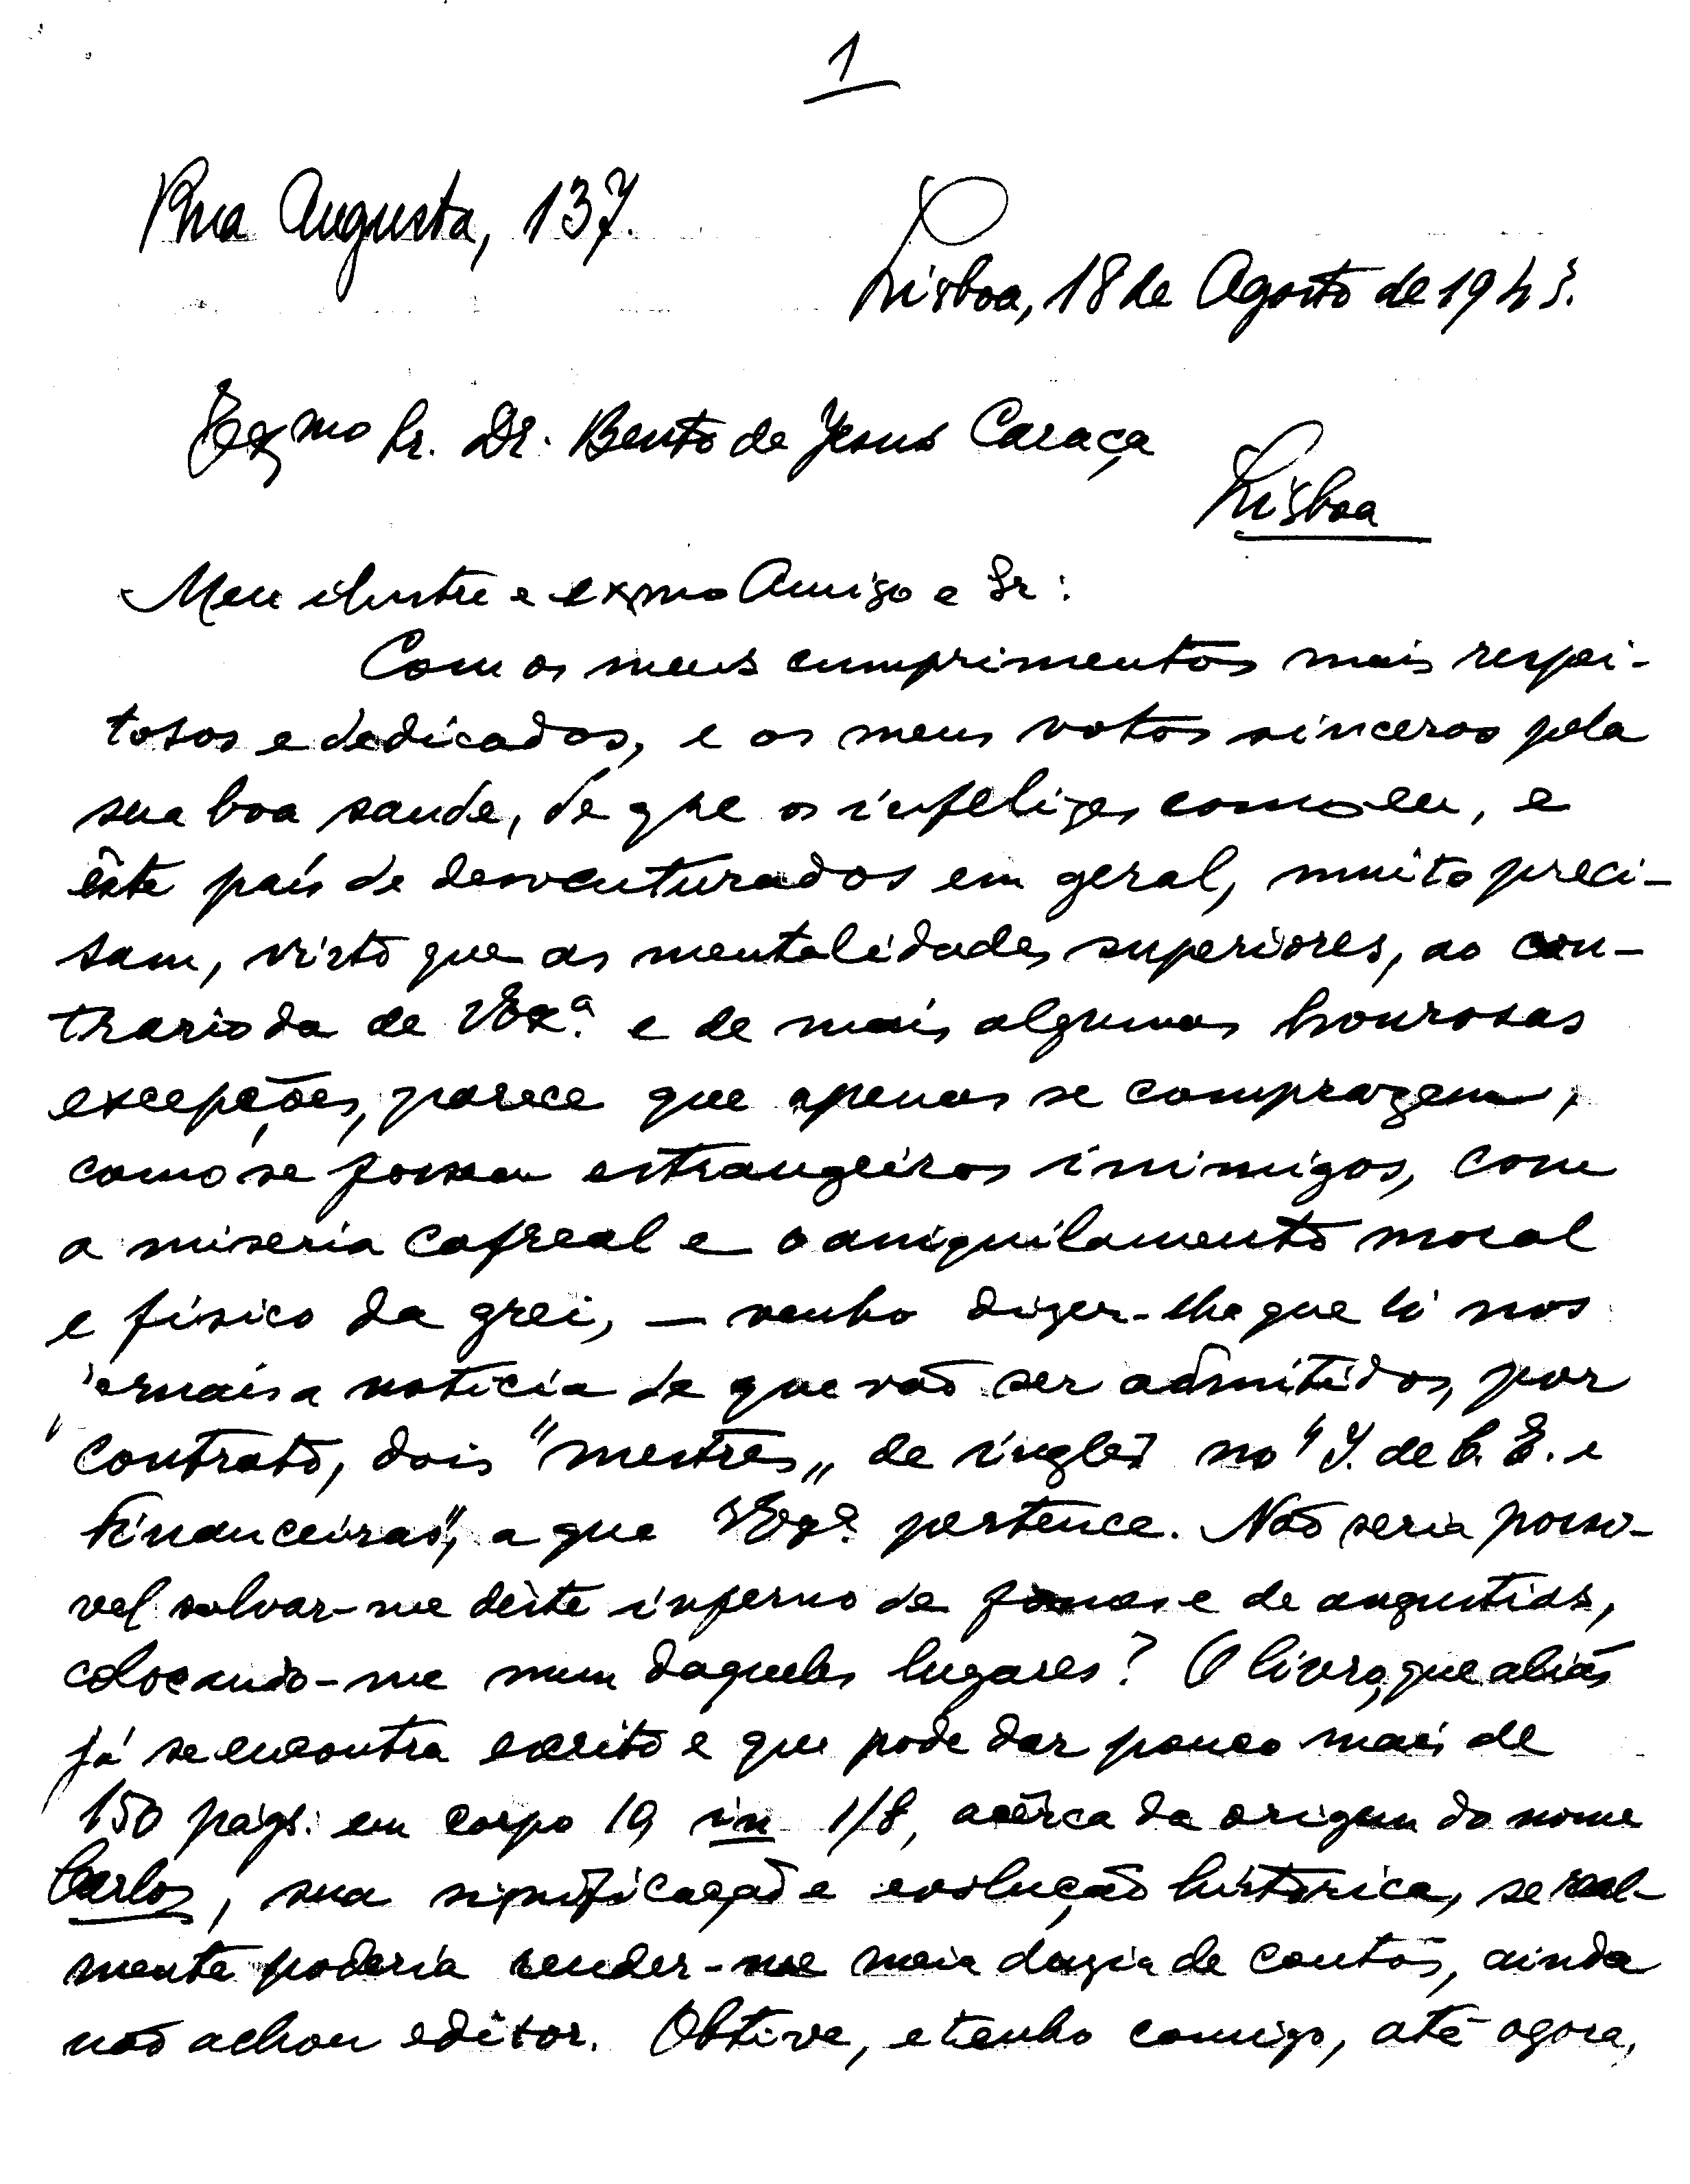 1
Rua Augusta, 137.
Lisboa, 18 de Agosto de 1945.
Exmo Sr. Dr. Bento de Jesus Caraça
Lisboa
Meu ilustre e exmo Amigo e Sr:
Com os meus cumprimentos mais respei-
tosos e dedicados, e os meus votos sinceros pela
sua boa saude, de que os infelizes como eu, e
êste país de desventurados em geral, muito preci-
sam, visto que as mentalidades superiores, ao con-
trario da de VExª. e de mais algumas honrosas
excepções, parece que apenas se comprazem,
como se fossem estrangeiros inimigos, com
a miseria cafreal e o aniquilamento moral
e físico da grei, — venho dizer-lhe que li nos
jornais a noticia de que vão ser admitidos, por
contrato, dois "mestres" de inglês no "I. de C. E. e
Financeiras", a que VExª. pertence. Não seria possi-
vel salvar-me dêste inferno de fomes e de angustias,
colocando-me num daqueles lugares? O livro, que aliás
já se encontra escrito e que pode dar pouco mais de
150 págs. em corpo 10 in 1/8, acêrca da origem do nome
Carlos, sua significação e evolução histórica, se real-
mente poderia render-me meia duzia de contos, ainda
não achou editor. Obtive, e tenho comigo, até agora,